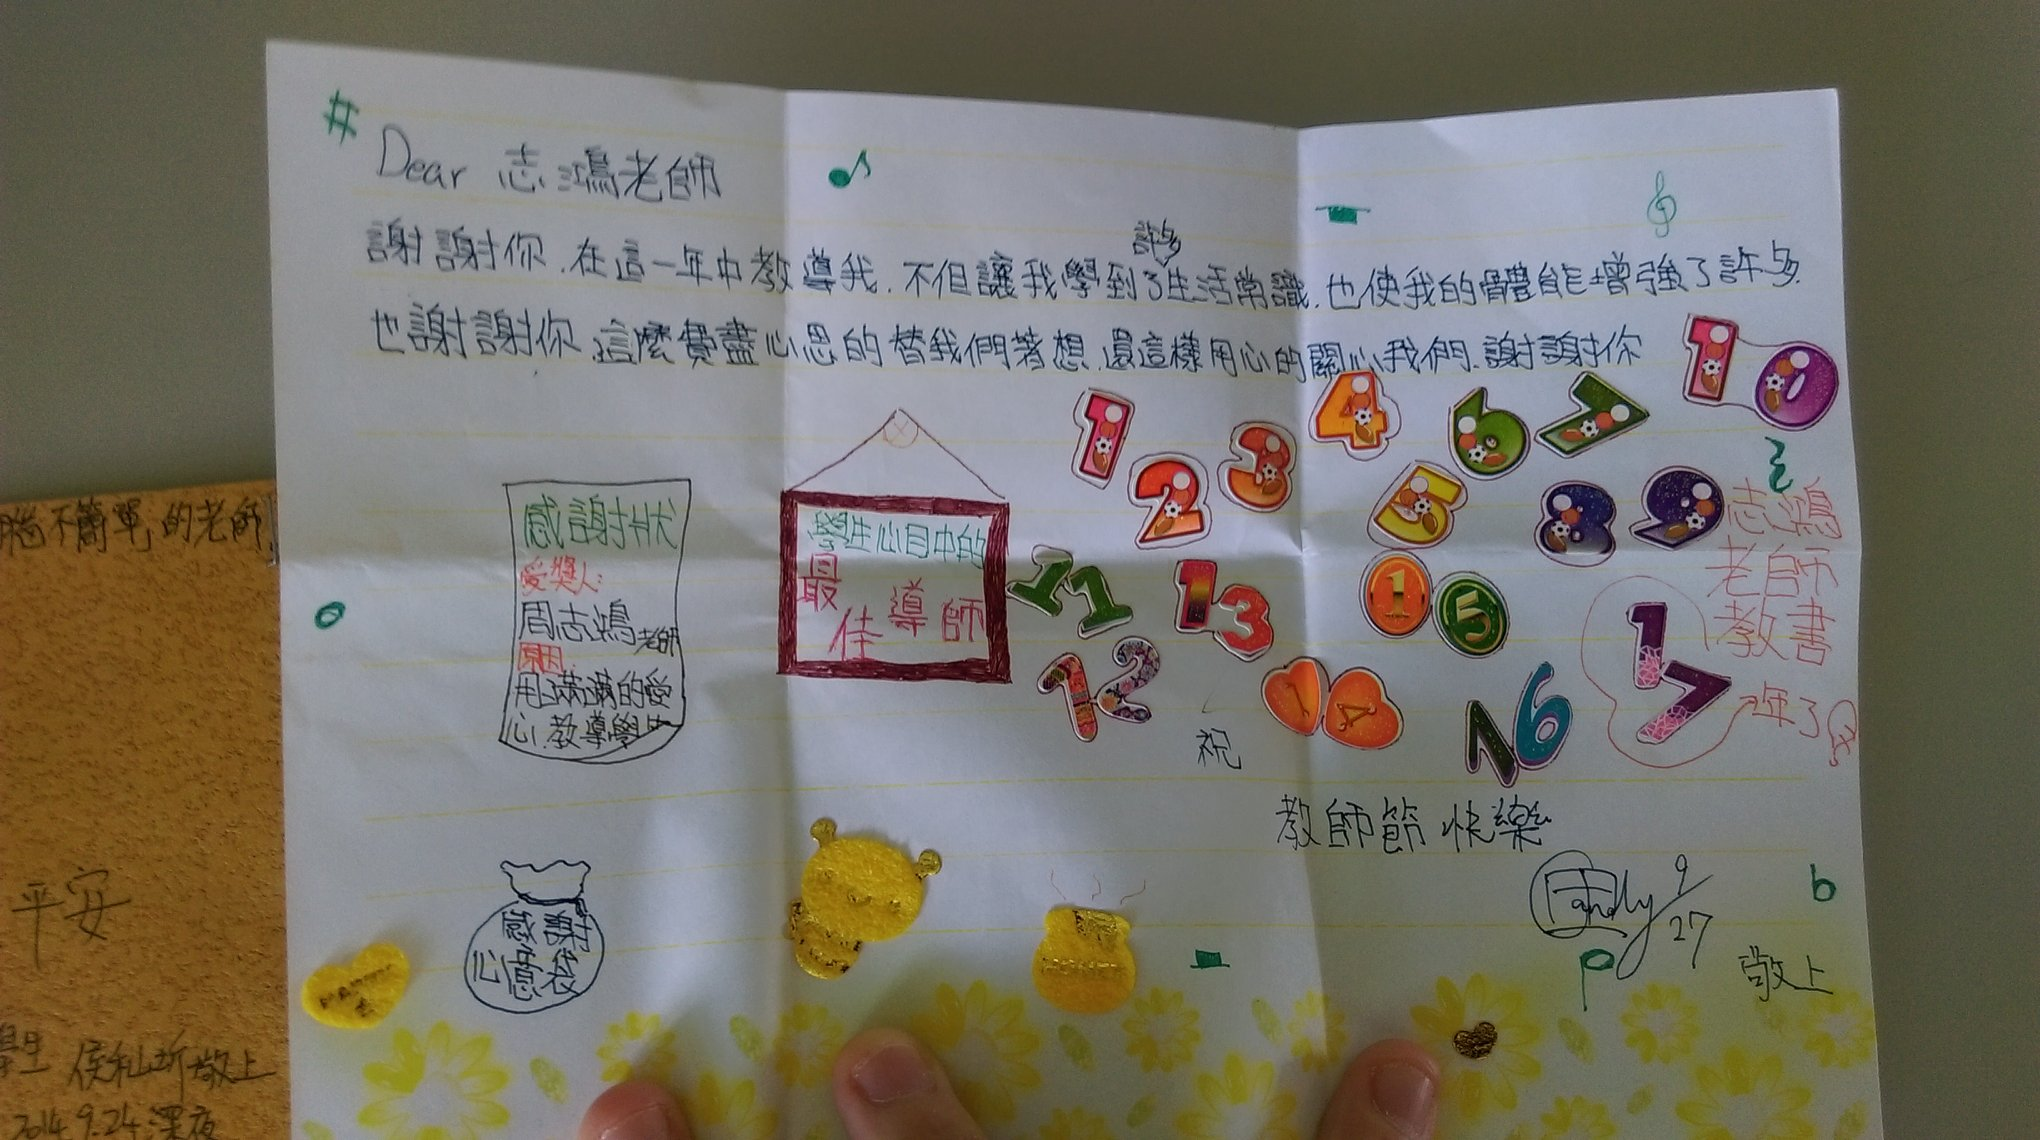 Dear 志鴻老師
謝謝你.在這一年中教導我.不但讓我學到了許多生活常識.也使我的體能增強了許多.
也謝謝你.這麼費盡心思的替我們著想.還這樣用心的關心我們.謝謝你
感謝狀
受獎人:
周志鴻老師
原因:
用滿滿的愛
心.教導學生
學生心目中的
最佳導師
1 2 3 4 5 6 7 8 9 10
11 12 13 14 15 16 17
志鴻
老師
教書
年了
祝
教師節快樂
9/27
敬上
感謝
心意袋
腦不簡單的老師
平安
學生
敬上
2014.9.24.深夜